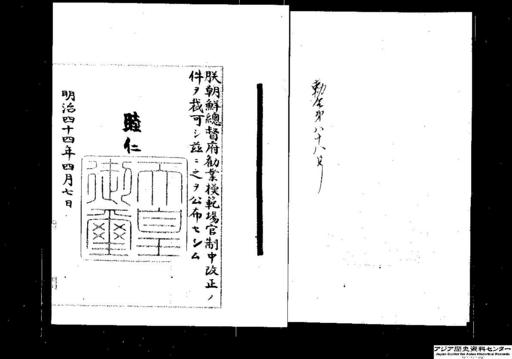 勅令第八十八号
朕朝鮮總督府勸業模範場官制中改正ノ
件ヲ裁可シ茲ニ之ヲ公布セシム
睦仁
天皇
御璽
明治四十四年四月七日
アジア歴史資料センター
Japan Center for Asian Historical Records